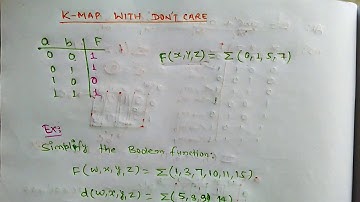 K-MAP WITH DON'T CARE
a b F
0 0 1
0 1 1
1 0 0
1 1 1
F(x,y,z) = Σ(0,1,5,7)
Ex:
Simplify the Boolern function:
F(w,x,y,z) = Σ(1,3,7,10,11,15).
d(w,x,y,z) = Σ(5, 14)